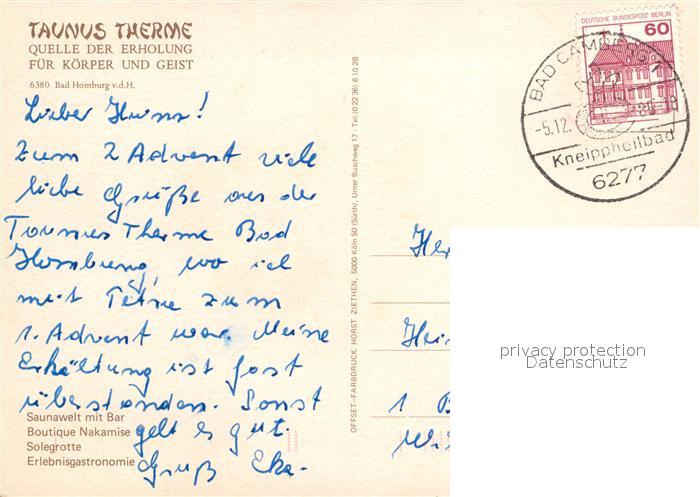 TAUNUS THERME
QUELLE DER ERHOLUNG
FÜR KÖRPER UND GEIST
6380 Bad Homburg v.d.H.
Lieber Heinz!
Zum 2 Advent viele
liebe Grüße aus der
Taunus Therme Bad
Homburg, wo ich
mit Täne zum
1. Advent war. Meine
Erkältung ist fast
überstanden. Sonst
geht es gut.
Gruß Eka.
Saunawelt mit Bar
Boutique Nakamise
Solegrotte
Erlebnisgastronomie
OFFSET-FARBDRUCK HORST ZIETHEN, 5000 Köln 50 (Sürth), Unter Buschweg 17 · Tel: (0 22 36) 6 10 28
DEUTSCHE BUNDESPOST BERLIN
60
BAD CAMBERG 1
-5.12.
Kneippheilbad
6277
Her
Hei
1 B
privacy protection
Datenschutz